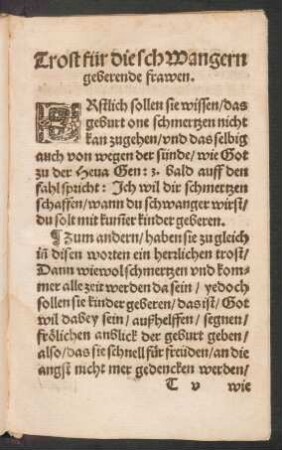 Trost für die schwangern
geberende frawen.
ERstlich sollen sie wissen/das
geburt one schmertzen nicht
kan zugehen/vnd das selbig
auch von wegen der sünde/wie Got
zu der Heua Gen: 3. bald auff den
fahl spricht: Ich wil dir schmertzen
schaffen/wann du schwanger wirst/
du solt mit kumer kinder geberen.
¶ Zum andern/haben sie zu gleich
in disen worten ein herrlichen trost/
Dann wiewol schmertzen vnd kom-
mer alle zeit werden da sein/ yedoch
sollen sie kinder geberen/das ist/ Got
wil dabey sein/ außhelffen/ segnen/
frölichen anblick der geburt geben/
also/das sie schnell für freüden/an die
angst nicht mer gedencken werden/
T v wie